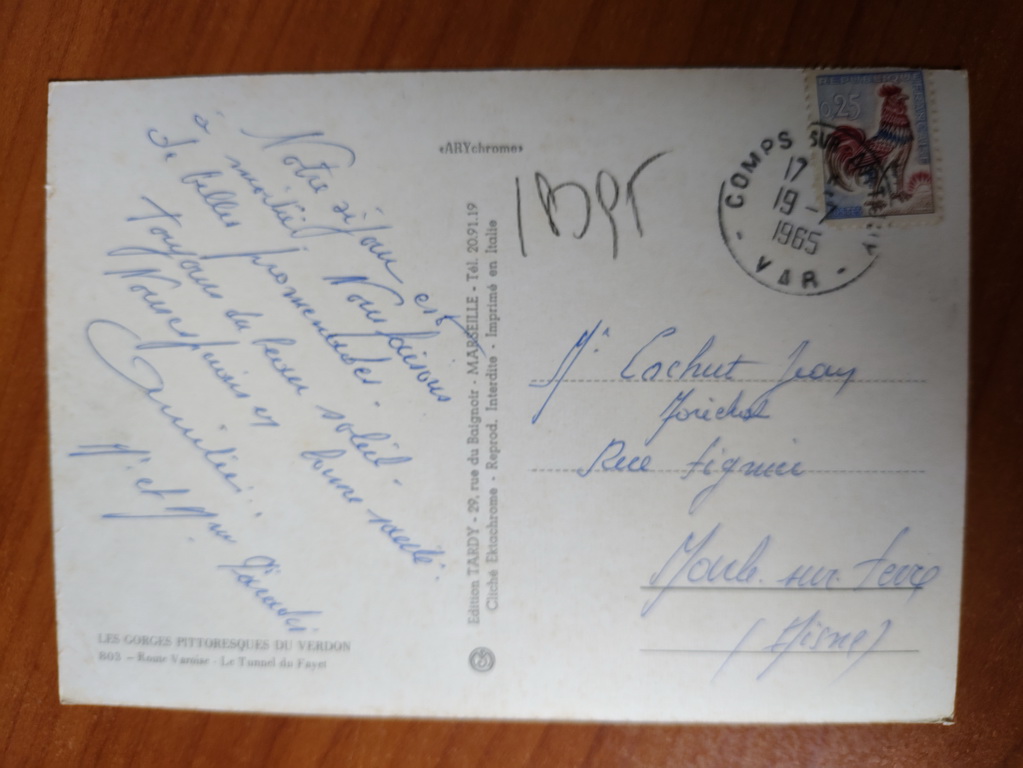 Notre séjour est
à merveil Nous faisons
de belles promenades.
Toujours du beau soleil.
Nous sommes en bonne santé.
Amitiés.
Mr et Mme
LES GORGES PITTORESQUES DU VERDON
803 — Route Varoise - Le Tunnel du Fayet
«ARYchrome»
Edition TARDY - 29, rue du Baignoir - MARSEILLE - Tél. 20.91.19
Cliché Ektachrome - Reprod. Interdite - Imprimé en Italie
0,25
COMPS SUR
17
19 -
1965
VAR
Mr Cochut Jean
Rue
sur Serre
(Aisne)